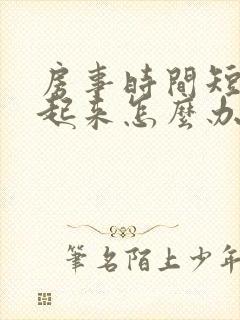 房事時間短
起來怎麼办
筆名陌上少年